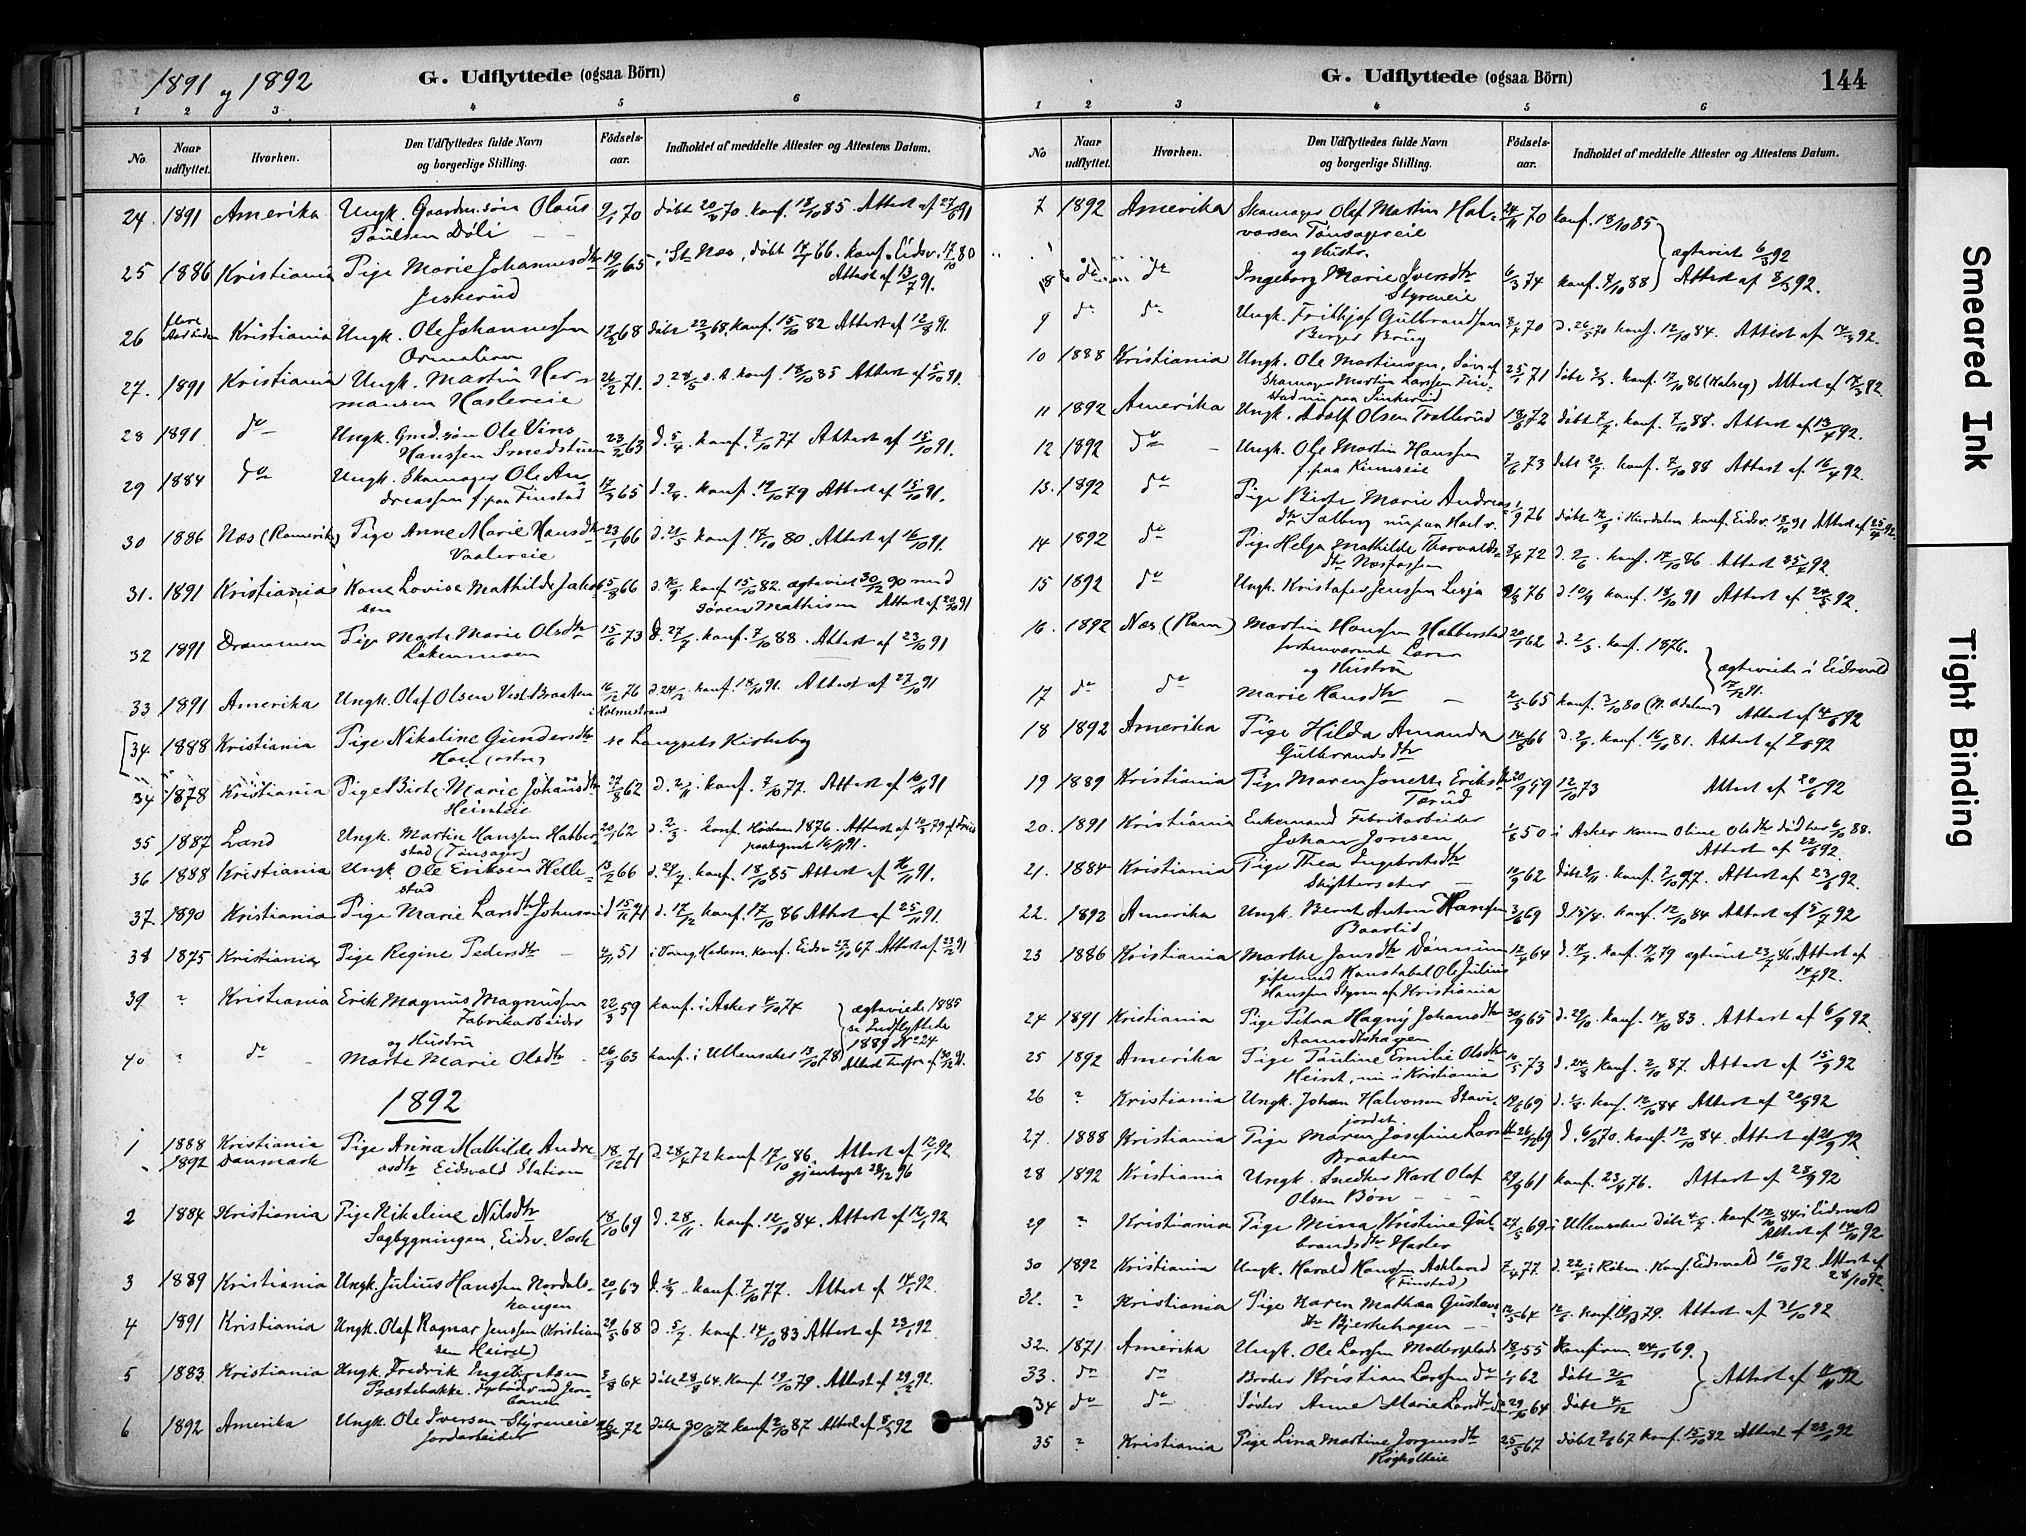 1891 og 1892
G. Udflyttede (ogsaa Börn)
1 2 3 4 5 6
No. Naar udflyttet. Hvorhen. Den Udflyttedes fulde Navn og borgerlige Stilling. Födsels-aar. Indholdet af meddelte Attester og Attestens Datum.
24. 1891 Amerika Ungk. Gaardm.søn Olaus 9/1 70 döbt 20/3 70. konf. 18/10 85. Attest af 27/6 91
Paulsen Döli
25 1886 Kristiania Pige Marie Johannesdtr 19/11 65 i St Næs, döbt 17/7 66. konf. Eidsv. 17/10 80
Attest af 13/7 91.
26 Kristiania Ungk. Ole Johannessen 68 konf. 15/10 82 Attest af 12/8 91.
27. 1891 Kristiania Ungk. Martin Her-
26/2 71. konf. 18/10 85 Attest af 5/10 91.
mansen Haslereie
28 1891 do Ungk. Gmd.søn Ole Vins 23/2 63 d. 5/4. konf. 7/10 77 Attest af 15/10 91.
Hanssen Smedstuen
29 1884 do Ungk. Skomager Ole An- 17/3 65 konf. 19/10 79 Attest af 15/10 91.
dreassen f. paa Finstad
30 1886 Næs (Romerike) Pige Anne Marie Hansdtr 23/1 66 d. 21/5 konf. 17/10 80. Attest af 16/10 91.
31. 1891 Kristiania Kone Lovise Mathilde Jakob- 66 d. 16/9 konf 15/10 82. ægteviet 30/12 90 med
sen Sören Mathisen Attest af 20/10 91
32 1891 Drammen Pige Marte Marie Olsdtr 15/6 73 D. 27/7. konf. 7/10 88. Attest af 23/10 91
Lökenmoen
33 1891 Amerika Ungk. Olaf Olsen Vest.Braaten 16/2 76 d. 24/2. konf. 18/10 91. Attest af 27/10 91
i Holmestrand
[34 1888 Kristiania Pige Nikoline Gundersdtr se Langsets Kirkebog
Hoel (østre)
34 1878 Kristiania Pige Birte Marie Johansdtr 27/8 62 d. 2/11. konf. 7/10 77. Attest af 10/11 91
Heimteie
35 1887 Land Ungk. Martin Hanssen Habber- 20/1 62 d. 2/3. konf. Hösten 1876. Attest af 10/3 79
stad (Tönsager) paategnet 91.
36 1888 Kristiania Ungk. Ole Eriksen Helle- 13/2 66 konf. 18/10 85 Attest af 91.
stad
37. 1890 Kristiania Pige Marie Larsdtr Johnsrud 15/11 71 d. 17/12. konf. 17/10 86 Attest af 25/11 91.
38 1875 Kristiania Pige Regine Pedersdtr 51 konf. Eidsv 27/10 67 Attest af 23/12 91
39 " Kristiania Erik Magnus Magnussen 22/3 59 konf. i Asker 4/10 74 ægteviede 1885
Fabrikarbeider se Indflyttede
og Hustru 1889 No 224
40 " do Marte Marie Olsdtr 26/9 63 konf. i Ullensaker 13/10 78
1892
1 1888 Kristiania Pige Anna Mathilde Andre- 18/12 71 d 28/4 72 konf 17/10 86. Attest af 12/1 92
1892 Danmark asdtr Eidsvold Station gjentaget 28/12 96
2 1884 Kristiania Pige Nikoline Nilsdtr 18/10 69 d. 28/11. konf. 12/10 84. Attest af 12/1 92
Sagbygningen, Eidsv. Værk
3 1889 Kristiania Ungk. Julius Hanssen Nordals- 20/1 63 konf. 7/10 77. Attest af 14/1 92.
haugen
4 1891 Kristiania Ungk. Olaf Ragnar Jenssen (Kristian- 29/5 68 d. 5/7. konf. 14/10 83 Attest af 23/1 92
sen Heiret)
5 1883 Kristiania Ungk. Fredrik Engebretsen 3/8 64 döbt 28/8 64. konf. 19/10 79. Attest af 29/2 92.
Præstebakke. Fyrböder ved Jern-
banen
6 1892 Amerika Ungk. Ole Iversen Styreneie 72 konf 7/10 87 Attest af 8/3 92
Jordarbeider
G. Udflyttede (ogsaa Börn) 144
1 2 3 4 5 6
No Naar udflyttet. Hvorhen. Den Udflyttedes fulde Navn og borgerlige Stilling. Födsels-aar. Indholdet af meddelte Attester og Attestens Datum.
7 1892 Amerika Skomager Olaf Martin Hal- 24/11 70 konf. 18/10 85
vorsen Tönsagereie
og Hustr. ægteviet 6/3 92
8 do do Ingeborg Marie Iversdtr 6/3 74 konf. 7/10 88 Attest af 8/3 92.
Styreneie
9 do do Ungk. Frithjof Gulbrandsen 70 d. 26/5 70 konf. 12/10 84. Attest af 14/3 92.
Berger Brug
10 1888 Kristiania Ungk. Ole Martinsen, Søn af 25/1 71 konf. 17/10 86 Attest af 17/3 92
Skomager Martin Larssen Fin-
stad nu paa Sinkerud
11 1892 Amerika Ungk. Adolf Olsen Trollerud 18/6 72 döbt 7/7. konf. 7/10 88. Attest af 13/4 92.
12 1892 do Ungk. Ole Martin Hanssen 7/6 73 döbt 20/7. konf. 7/10 88 Attest af 16/4 92.
f. paa
13. 1892 do Pige Birte Marie Andreas- 1/9 76 döbt i Hurdalen konf. Eidsv. 18/10 91 Attest af 25/4 92.
dtr Solberg nu paa
14 1892 do Pige Helga Mathilde Thorvalds- 3/4 72 d. 2/6. konf. 17/10 86. Attest 92.
dtr Næsfossen
15 1892 do Ungk. Kristofer Jenssen Lesja 76 d. 10/9 konf. 18/10 91 Attest af 24/5 92.
16. 1892 Næs (Rom) Martin Hanssen Habberstad 20/1 62 d. 2/3. konf. 1876.
forhenværende Lærer
og Hustru ægteviede i Eidsvold
17 do do Marie Hansdtr 2/5 65 konf. 3/10 80 91.
Attest af 4/6 92
18 1892 Amerika Pige Hilda Amanda 14/8 66 d. 2/9. konf. 16/10 81. Attest af 92
Gulbrandsdtr
19 1889 Kristiania Pige Maren Jonette Eriksdtr 20/9 59 12/10 73 Attest af 20/6 92
Tærud
20. 1891 Kristiania Enkemand Fabrikarbeider 1/8 50 i Asker konen Oline Olsdtr död her 6/10 88.
Johan Jonsen Attest af 22/6 92.
21. 1884 Kristiania Pige Thea Ingebretsdtr 14/9 62 döbt 2/11. konf. 7/10 77. Attest af 23/6 92.
Skytterseter
22. 1892 Amerika Ungk. Bernt Anton Hansen 3/3 69 d 15/4. konf. 12/10 84 Attest af 5/7 92
Baarlid
23 1886 Kristiania Marthe Jonsdtr Dönnum 12/4 64 konf. 79 ægteviet 23/7 86. Attest af
gift med Konstabel Ole Julius 14/7 92.
Hanssen Styren af Kristiania
24 1891 Kristiania Pige Petra Hagny Johansdtr 30/9 65 d. 29/10. konf. 14/10 83. Attest af 6/9 92.
Aamodtshagen
25 1892 Amerika Pige Pauline Emilie Olsdtr 10/5 73 d. 24/8 konf. 2/10 87. Attest af 15/9 92
Heiret, nu i Kristiania
26 ? Kristiania Ungk. Johan Halvorsen 69 konf. 12/10 84 Attest af 20/9 92
jordet.
27. 1888 Kristiania Pige Maren Josefine Larsdtr 26/12 69 d. 6/2 70. konf. 12/10 84. Attest af 21/9 92.
Braaten
28 1892 Kristiania Ungk. Snedker Karl Olaf 29/9 61 konf. 23/4 76. Attest af 28/9 92
Olsen Bön
29 ? Kristiania Pige Mina Kristine Gul- 27/5 69 i Ullensaker döbt 4/7. konf 12/10 84 i Eidsvold
brandsdtr Hasler Attest af 14/10 92
30 1892 Kristiania Ungk. Harald Hanssen 7/4 77 d. 22/4 i Röken. Konf. Eidsvold 16/10 92. Attest af
(Finstad) 28/10 92.
31. ? Kristiania Pige Karen Mathea Gustavs- 64 konf 19/10 79. Attest af 31/10 92
dtr Bjerkehagen
32. 1871 Amerika Ungk. Ole Larssen Mollerplads 18/1 55 Konfirm. 24/10 69.
33. do do Broder Kristian Larssen do 62 döbt 2/2 Attest af 92
34 do do Söster Anne Marie Larsdtr do 29/10 64 döbt 4/12
35 ? Kristiania Pige Lina Martine Jorgensdtr 25/5 67 döbt 67 konf. 15/10 82 Attest af 23/11 92
Rogholteie
Smeared Ink
Tight Binding